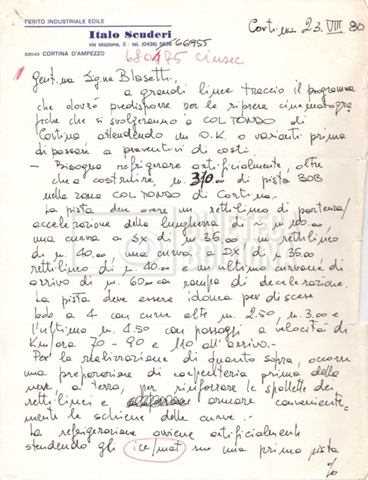 PERITO INDUSTRIALE EDILE
Italo Scuderi
via stazione, 3 - tel. (0436) 5636 66955
32043 CORTINA D'AMPEZZO
Cortina 23 VIII 80
680475 cinsec
Gent.ma Sig.na Blasetti,
a grandi linee traccio il programma
che dovrò predisporre per le riprese cinematogra
fiche che si svolgeranno a COL TONDO di
Cortina attendendo un O.K. o varianti prima
di passare a preventivi di costi.
- Bisogna refrigerare artificialmente, oltre
che a costruire, m. 310.00 di pista BOB
nella zona COL TONDO di Cortina.
La pista deve avere un rettilineo di partenza/
accelerazione della lunghezza di m. 100.00
una curva a SX di m 35.00 un rettilineo
di m. 40.00 una curva a DX di m 35.00
rettilineo di m. 40.00 un ultimo curvone di
arrivo di m. 60.00 a rampa di decelerazione.
La pista deve essere idonea per discese
bob a 4 con curve alte m. 2.50 m. 3.00 e
l'ultimo m. 4.50 con passaggi a velocità di
Km/ora 70 - 90 e 110 all'arrivo.-
Per la realizzazione di quanto sopra, occorre
una preparazione di carpenteria prima della
neve a terra, per rinforzare le spallette dei
rettilinei e armare conveniente=
mente le schiene delle curve.-
La refrigerazione avviene artificialmente
stendendo gli ice/mat su una prima pista